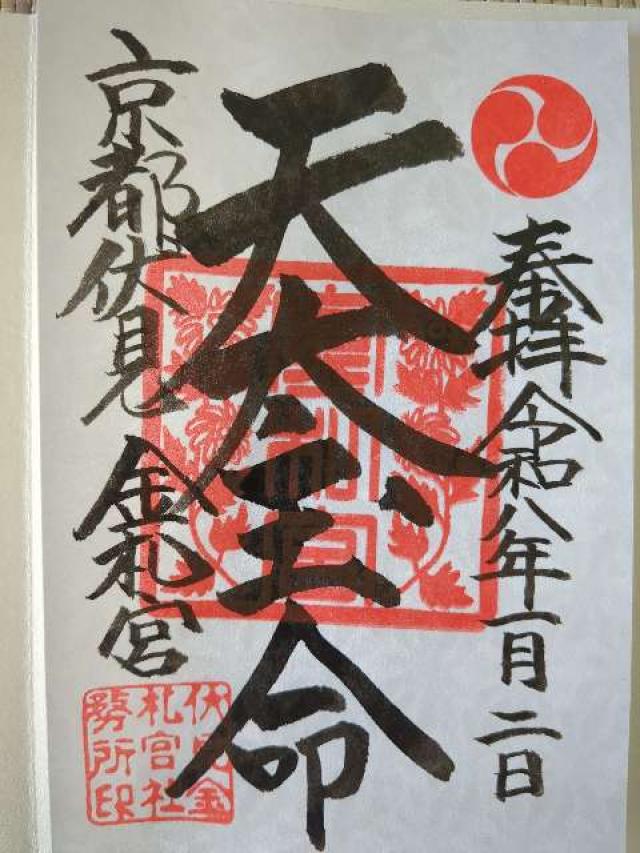 奉拝 令和八年一月二日
天太玉命
京都伏見 金札宮
金札宮
伏見金
札宮社
務所印